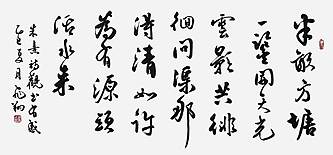 半畝方塘
一鑒開天光
雲影共徘
徊問渠那
得清如許
為有源頭
活水来
朱熹詩觀書有感
夏月